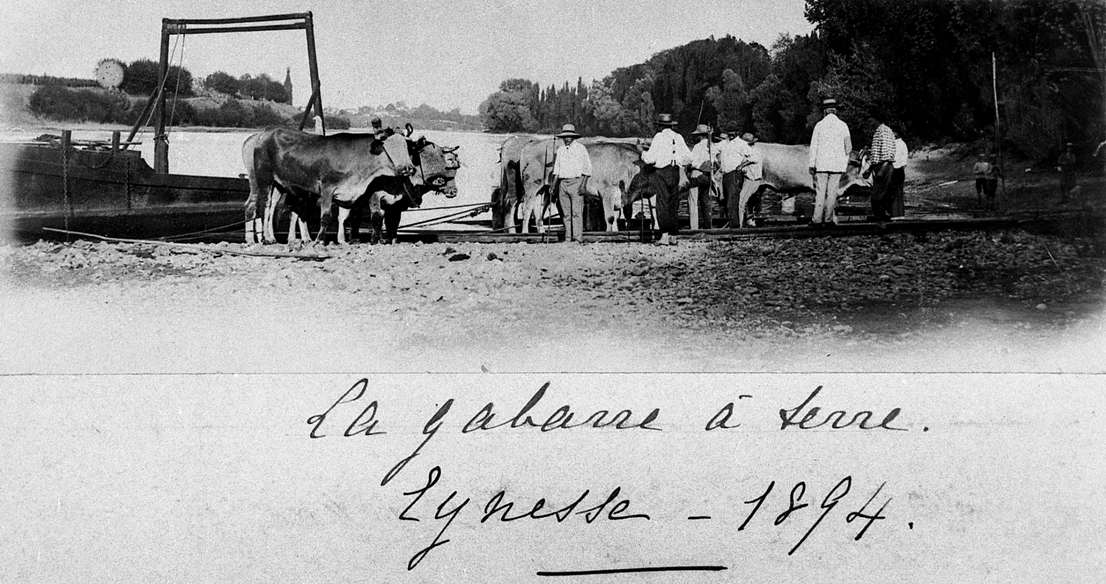 La gabarre à terre.
Eynesse - 1894.